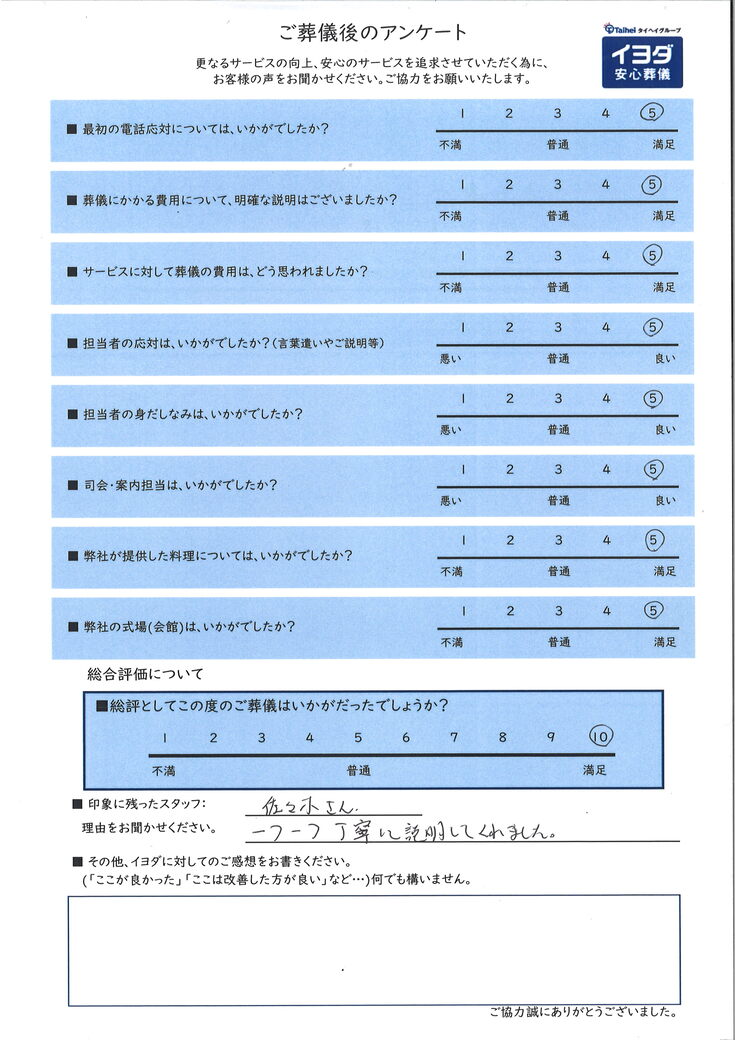 ご葬儀後のアンケート
Taihei タイヘイグループ
イヨダ
安心葬儀
更なるサービスの向上、安心のサービスを追求させていただく為に、
お客様の声をお聞かせください。ご協力をお願いいたします。
■ 最初の電話応対については、いかがでしたか?
1 2 3 4 5
不満 普通 満足
■ 葬儀にかかる費用について、明確な説明はございましたか?
1 2 3 4 5
不満 普通 満足
■ サービスに対して葬儀の費用は、どう思われましたか?
1 2 3 4 5
不満 普通 満足
■ 担当者の応対は、いかがでしたか?(言葉遣いやご説明等)
1 2 3 4 5
悪い 普通 良い
■ 担当者の身だしなみは、いかがでしたか?
1 2 3 4 5
悪い 普通 良い
■ 司会・案内担当は、いかがでしたか?
1 2 3 4 5
悪い 普通 良い
■ 弊社が提供した料理については、いかがでしたか?
1 2 3 4 5
不満 普通 満足
■ 弊社の式場(会館)は、いかがでしたか?
1 2 3 4 5
不満 普通 満足
総合評価について
■総評としてこの度のご葬儀はいかがだったでしょうか?
1 2 3 4 5 6 7 8 9 10
不満 普通 満足
■ 印象に残ったスタッフ: 佐々木さん.
理由をお聞かせください。 一つ一つ丁寧に説明してくれました。
■ その他、イヨダに対してのご感想をお書きください。
(「ここが良かった」「ここは改善した方が良い」など…)何でも構いません。
ご協力誠にありがとうございました。